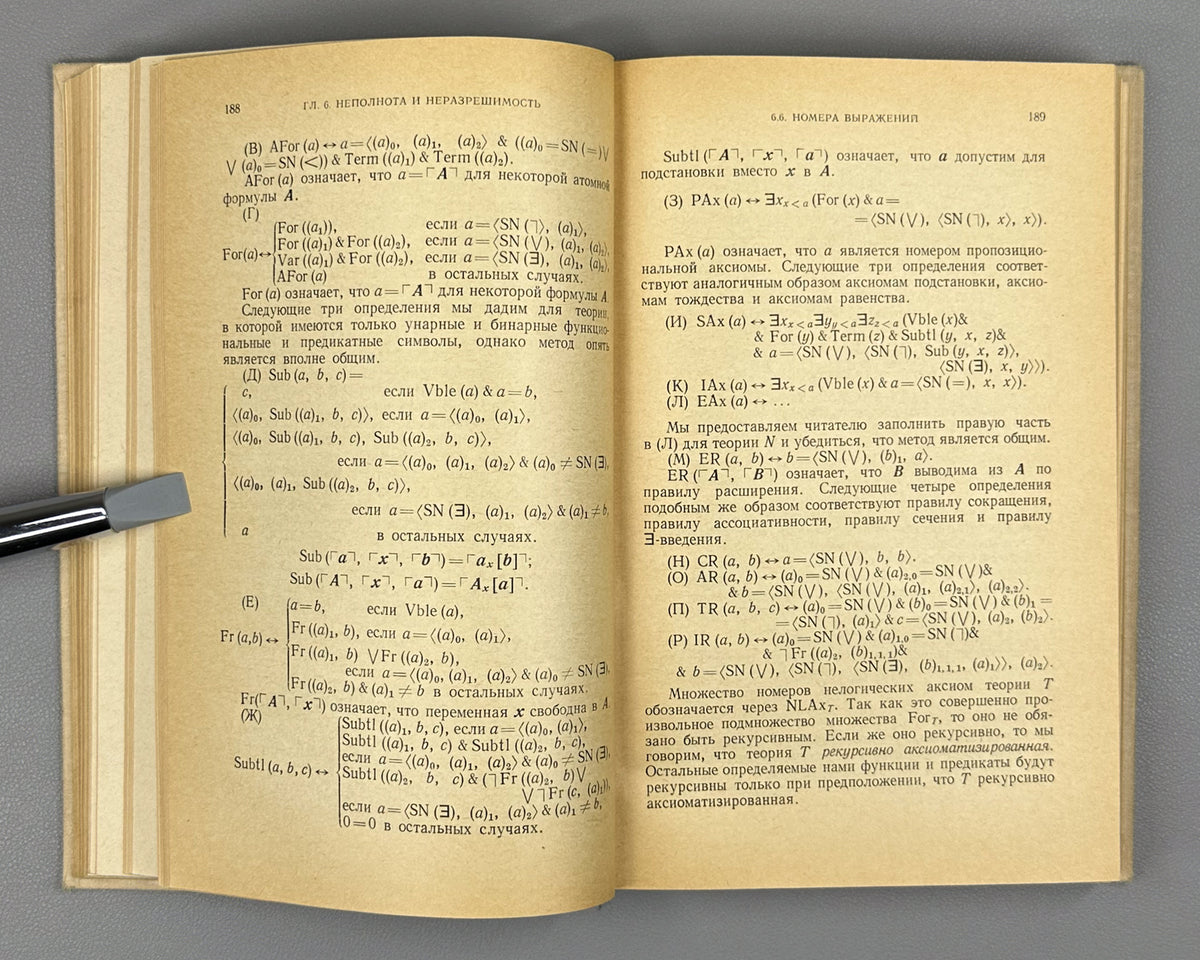 188
ГЛ. 6. НЕПОЛНОТА И НЕРАЗРЕШИМОСТЬ
(В) AFor (a) ↔ a=⟨(a)₀, (a)₁, (a)₂⟩ & ((a)₀=SN (=)∨
∨ (a)₀=SN (<)) & Term ((a)₁) & Term ((a)₂).
AFor (a) означает, что a=⌜A⌝ для некоторой атомной
формулы A.
(Г)
For(a)↔
For ((a₁)), если a=⟨SN (⅂), (a)₁⟩,
For ((a)₁) & For ((a)₂), если a=⟨SN (∨), (a)₁, (a)₂⟩,
Var ((a)₁) & For ((a)₂), если a=⟨SN (∃), (a)₁, (a)₂⟩,
AFor (a) в остальных случаях.
For (a) означает, что a=⌜A⌝ для некоторой формулы A.
Следующие три определения мы дадим для теории,
в которой имеются только унарные и бинарные функцио-
нальные и предикатные символы, однако метод опять
является вполне общим.
(Д) Sub (a, b, c)=
c, если Vble (a) & a=b,
⟨(a)₀, Sub ((a)₁, b, c)⟩, если a=⟨(a)₀, (a)₁⟩,
⟨(a)₀, Sub ((a)₁, b, c), Sub ((a)₂, b, c)⟩,
если a=⟨(a)₀, (a)₁, (a)₂⟩ & (a)₀ ≠ SN (∃),
⟨(a)₀, (a)₁, Sub ((a)₂, b, c)⟩,
если a=⟨SN (∃), (a)₁, (a)₂⟩ & (a)₁ ≠ b,
a в остальных случаях.
Sub (⌜a⌝, ⌜x⌝, ⌜b⌝)=⌜aₓ [b]⌝;
Sub (⌜A⌝, ⌜x⌝, ⌜a⌝)=⌜Aₓ [a]⌝.
(Е)
Fr (a,b)↔
a=b, если Vble (a),
Fr ((a)₁, b), если a=⟨(a)₀, (a)₁⟩,
Fr ((a)₁, b) ∨Fr ((a)₂, b),
если a=⟨(a)₀, (a)₁, (a)₂⟩ & (a)₀ ≠ SN (∃),
Fr ((a)₂, b) & (a)₁ ≠ b в остальных случаях.
Fr(⌜A⌝, ⌜x⌝) означает, что переменная x свободна в A.
(Ж)
Subtl (a, b, c)↔
Subtl ((a)₁, b, c), если a=⟨(a)₀, (a)₁⟩,
Subtl ((a)₁, b, c) & Subtl ((a)₂, b, c),
если a=⟨(a)₀, (a)₁, (a)₂⟩ & (a)₀ ≠ SN (∃),
Subtl ((a)₂, b, c) & (⅂ Fr ((a)₂, b) ∨
∨ ⅂ Fr (c, (a)₁)),
если a=⟨SN (∃), (a)₁, (a)₂⟩ & (a)₁ ≠ b,
0=0 в остальных случаях.
6.6. НОМЕРА ВЫРАЖЕНИЙ
189
Subtl (⌜A⌝, ⌜x⌝, ⌜a⌝) означает, что a допустим для
подстановки вместо x в A.
(З) PAx (a) ↔ ∃xₓ<ₐ (For (x) & a=
=⟨SN (∨), ⟨SN (⅂), x⟩, x⟩).
PAx (a) означает, что a является номером пропозицио-
нальной аксиомы. Следующие три определения соответ-
ствуют аналогичным образом аксиомам подстановки, аксио-
мам тождества и аксиомам равенства.
(И) SAx (a) ↔ ∃xₓ<ₐ∃y_y<ₐ∃z_z<ₐ (Vble (x)&
& For (y) & Term (z) & Subtl (y, x, z)&
& a=⟨SN (∨), ⟨SN (⅂), Sub (y, x, z)⟩,
⟨SN (∃), x, y⟩⟩).
(К) IAx (a) ↔ ∃xₓ<ₐ (Vble (x) & a=⟨SN (=), x, x⟩).
(Л) EAx (a) ↔ ...
Мы предоставляем читателю заполнить правую часть
в (Л) для теории N и убедиться, что метод является общим.
(М) ER (a, b) ↔ b=⟨SN (∨), (b)₁, a⟩.
ER (⌜A⌝, ⌜B⌝) означает, что B выводима из A по
правилу расширения. Следующие четыре определения
подобным же образом соответствуют правилу сокращения,
правилу ассоциативности, правилу сечения и правилу
∃-введения.
(Н) CR (a, b) ↔ a=⟨SN (∨), b, b⟩.
(О) AR (a, b) ↔ (a)₀=SN (∨) & (a)₂,₀=SN (∨)&
& b=⟨SN (∨), ⟨SN (∨), (a)₁, (a)₂,₁⟩, (a)₂,₂⟩.
(П) TR (a, b, c) ↔ (a)₀=SN (∨) & (b)₀=SN (∨) & (b)₁ =
=⟨SN (⅂), (a)₁⟩ & c=⟨SN (∨), (a)₂, (b)₂⟩.
(Р) IR (a, b) ↔ (a)₀=SN (∨) & (a)₁,₀=SN (⅂)&
& ⅂ Fr ((a)₂, (b)₁,₁,₁)&
& b=⟨SN (∨), ⟨SN (⅂), ⟨SN (∃), (b)₁,₁,₁, (a)₁⟩⟩, (a)₂⟩.
Множество номеров нелогических аксиом теории T
обозначается через NLAx_T. Так как это совершенно про-
извольное подмножество множества For_T, то оно не обя-
зано быть рекурсивным. Если же оно рекурсивно, то мы
говорим, что теория T рекурсивно аксиоматизированная.
Остальные определяемые нами функции и предикаты будут
рекурсивны только при предположении, что T рекурсивно
аксиоматизированная.